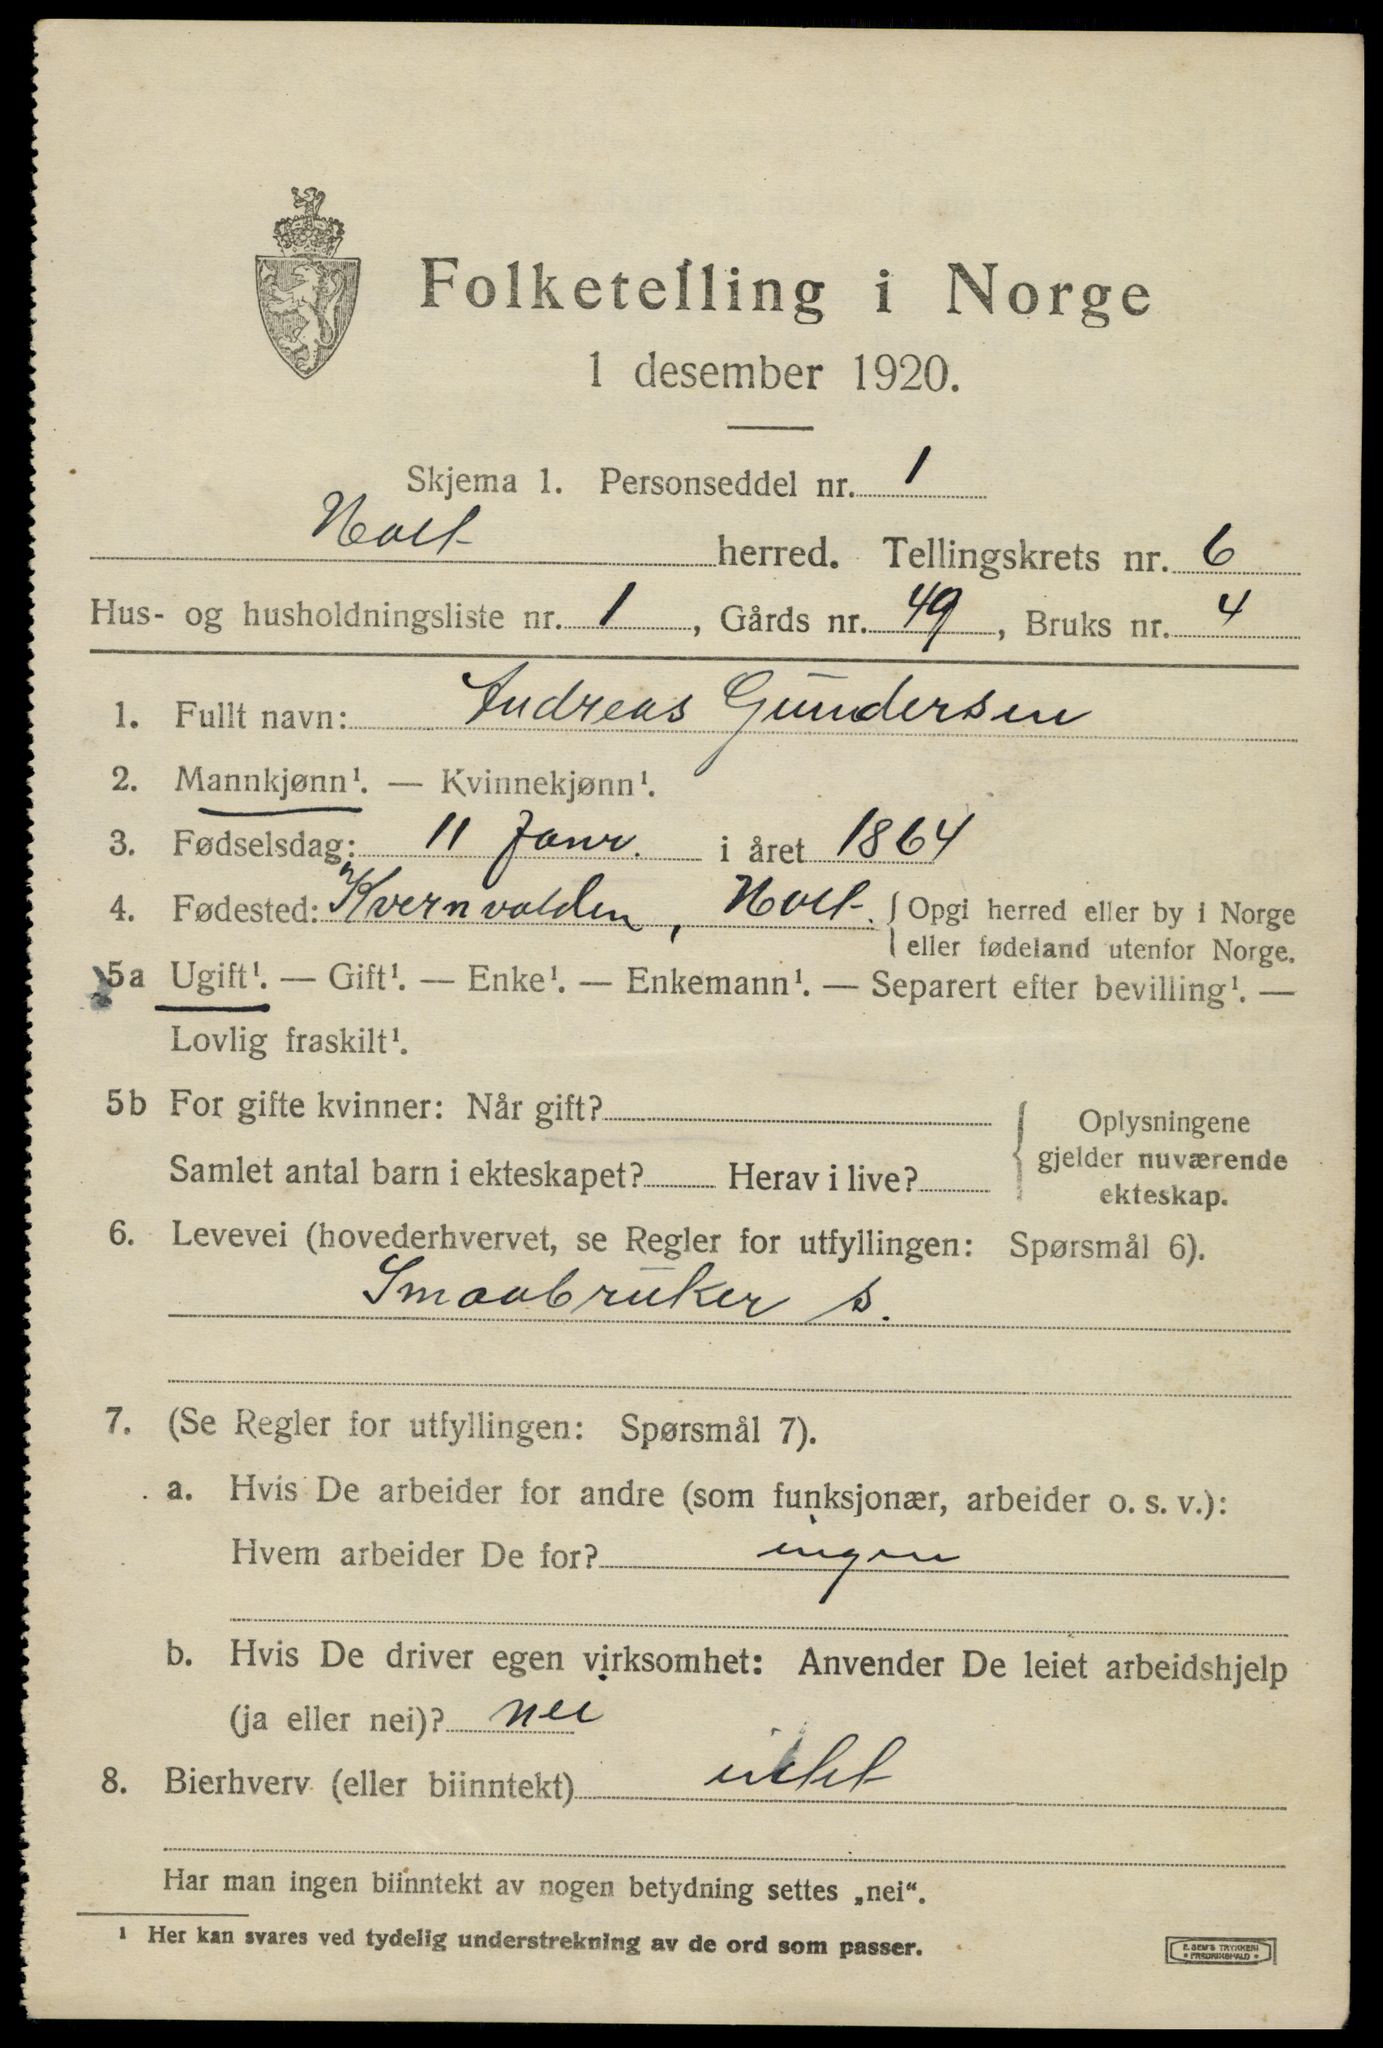 Folketelling i Norge
1 desember 1920.
Skjema 1. Personseddel nr. 1
Holt herred. Tellingskrets nr. 6
Hus- og husholdningsliste nr. 1, Gårds nr. 49, Bruks nr. 4
1. Fullt navn: Andreas Gundersen
2. Mannkjønn¹. — Kvinnekjønn¹.
3. Fødselsdag: 11 Janr. i året 1864
4. Fødested: Kvernvolden, Holt. { Opgi herred eller by i Norge
eller fødeland utenfor Norge.
5a Ugift¹. — Gift¹. — Enke¹. — Enkemann¹. — Separert efter bevilling¹. —
Lovlig fraskilt¹.
5b For gifte kvinner: Når gift?
Samlet antal barn i ekteskapet? Herav i live?
Oplysningene
gjelder nuværende
ekteskap.
6. Levevei (hovederhvervet, se Regler for utfyllingen: Spørsmål 6).
Smaabruker s.
7. (Se Regler for utfyllingen: Spørsmål 7).
a. Hvis De arbeider for andre (som funksjonær, arbeider o. s. v.):
Hvem arbeider De for? ingen
b. Hvis De driver egen virksomhet: Anvender De leiet arbeidshjelp
(ja eller nei)? nei
8. Bierhverv (eller biinntekt)
Har man ingen biinntekt av nogen betydning settes „nei“.
¹ Her kan svares ved tydelig understrekning av de ord som passer.
E. SEM'S TRYKKERI
* FREDRIKSHALD *